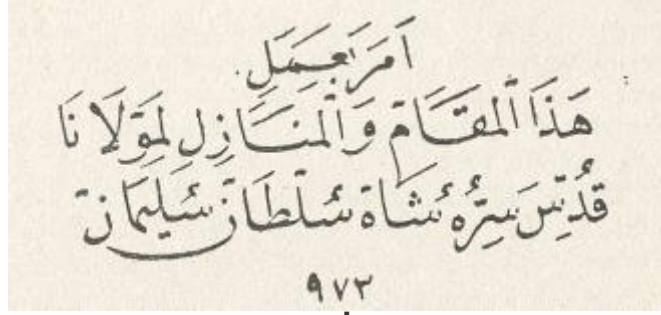 اَمَرَ بِعَمَلِ
هَذَا الْمَقَامِ وَالْمَنَازِلِ لِمَوْلَانَا
قُدِّسَ سِرُّهُ شَاهْ سُلْطَانْ سُلَيْمَانْ
٩٧٣